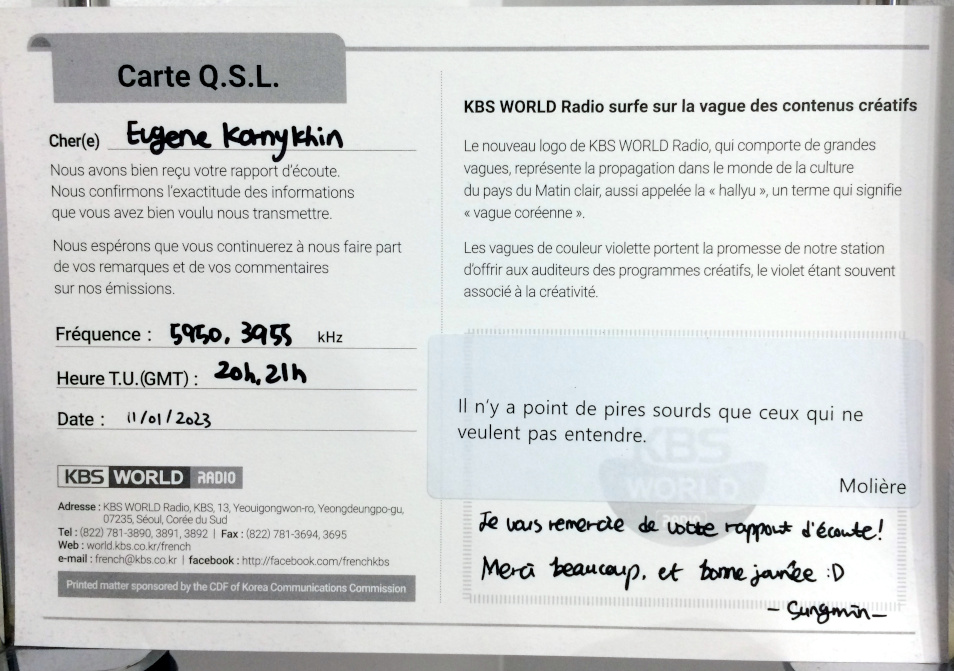 Carte Q.S.L.
Cher(e) Eugene Kornykhin
Nous avons bien reçu votre rapport d'écoute.
Nous confirmons l'exactitude des informations
que vous avez bien voulu nous transmettre.
Nous espérons que vous continuerez à nous faire part
de vos remarques et de vos commentaires
sur nos émissions.
Fréquence : 5950, 3955 kHz
Heure T.U.(GMT) : 20h, 21h
Date : 11/01/2023
KBS WORLD RADIO
Adresse : KBS WORLD Radio, KBS, 13, Yeouigongwon-ro, Yeongdeungpo-gu,
07235, Séoul, Corée du Sud
Tel : (822) 781-3890, 3891, 3892 | Fax : (822) 781-3694, 3695
Web : world.kbs.co.kr/french
e-mail : french@kbs.co.kr | facebook : http://facebook.com/frenchkbs
Printed matter sponsored by the CDF of Korea Communications Commission
KBS WORLD Radio surfe sur la vague des contenus créatifs
Le nouveau logo de KBS WORLD Radio, qui comporte de grandes
vagues, représente la propagation dans le monde de la culture
du pays du Matin clair, aussi appelée la « hallyu », un terme qui signifie
« vague coréenne ».
Les vagues de couleur violette portent la promesse de notre station
d'offrir aux auditeurs des programmes créatifs, le violet étant souvent
associé à la créativité.
Il n'y a point de pires sourds que ceux qui ne
veulent pas entendre.
Molière
KBS
WORLD
RADIO
Je vous remercie de votre rapport d'écoute!
Merci beaucoup, et bonne année :D
- Sungmin -